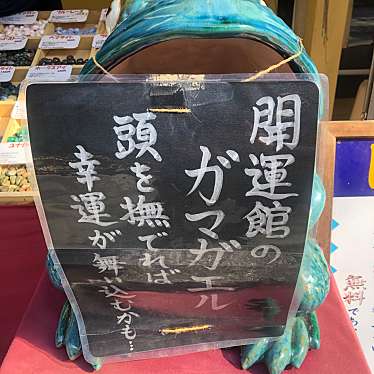 開運館の
ガマガエル
頭を撫でれば
幸運が舞い込むかも…
無料で